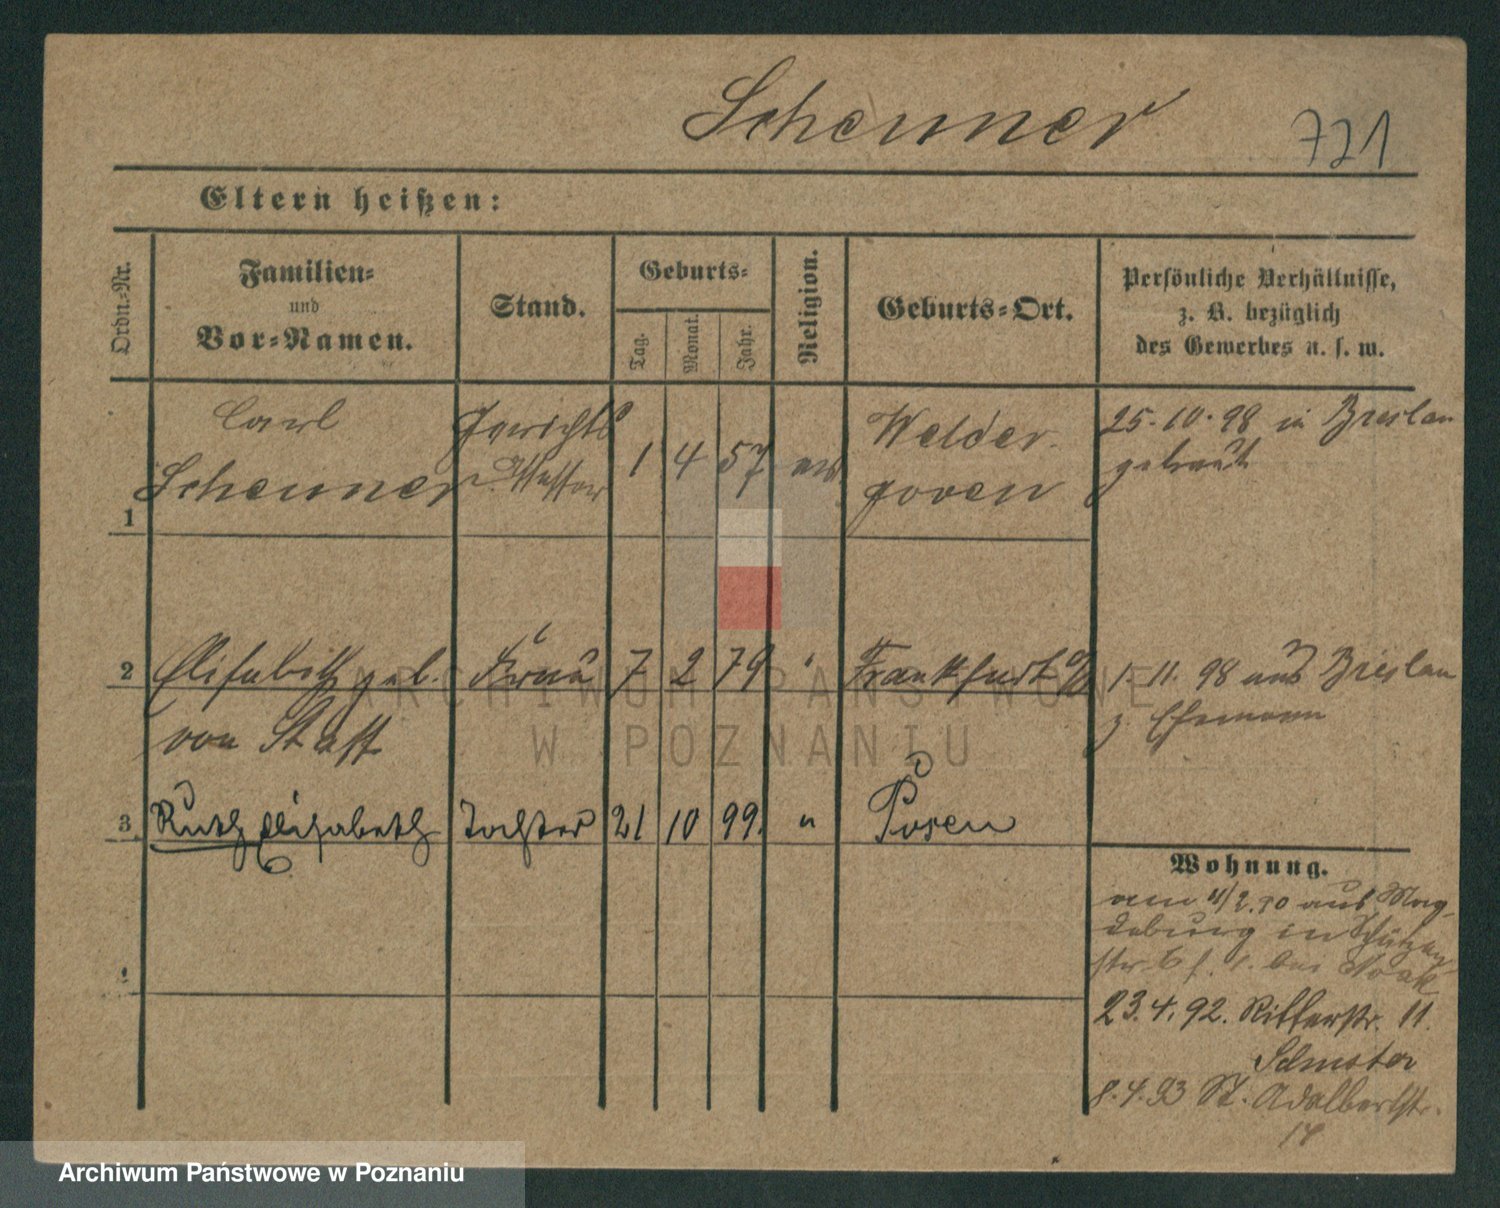 Scheuner
721
Eltern heißen:
Ordn.-Nr.
Familien-
und
Vor-Namen.
Stand.
Geburts-
Tag.
Monat.
Jahr.
Religion.
Geburts-Ort.
Persönliche Verhältnisse,
z. B. bezüglich
des Gewerbes u. s. w.
1
Carl
Scheuner
Gerichts
Assessor
1
4
57
ev.
25.10.98 in Breslau
getraut
2
Elisabeth geb.
von Staff
Frau
7
2
79
"
Frankfurt a/O
1.11.98 aus Breslau
z. Ehemann
3
Ruth Elisabeth
Tochter
21
10
99.
"
Posen
4
Wohnung.
am 11/2.90 aus Mag-
deburg in Schützen
str. 6 bei Noak
23.4.92. Ritterstr. 11.
8.4.93 St. Adalbertstr.
ARCHIWUM PAŃSTWOWE
W POZNANIU
Archiwum Państwowe w Poznaniu